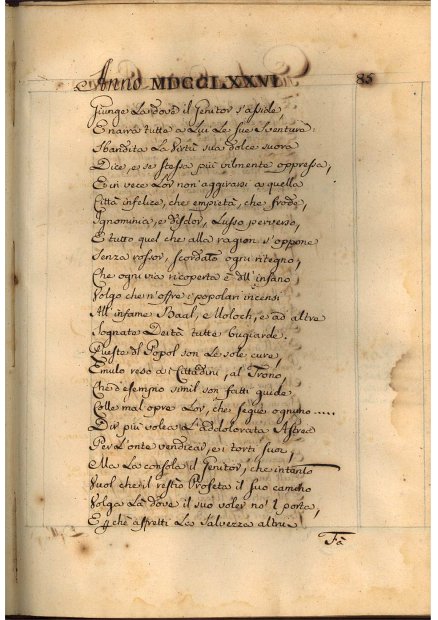 Anno MDCCLXXVI. 85
Giunge La dove il Genitor s'asside,
E narra tutte a Lui Le sue sventure:
Sbandita La Virtù sua dolce suora
Dice, e se stessa più vilmente oppressa,
E in vece Lor non aggirarsi a quella
Città infelice, che empietà, che frode,
Ignominia, e disdor, Lusso perverso,
E tutto quel che alla ragion s'oppone
Senza rossor, scordato ogni ritegno,
Che ogni via ricoperta è dll' insano
Volgo che n'offre i popolari incensi
All' infame Baal, e Moloch, e ad altre
Sognate Deità tutte bugiarde.
Queste dl Popol son Le sole cure,
Emulo reso a i Cittadini, al Trono,
Che d'esempio simil son fatti guide
Colle mal opre Lor, che segue ognuno.....
Dir più volea L'addolorata Astrea
Per L'onte vendicar, e i torti suoi,
Ma La consola il Genitor, che intanto
Vuol che il restio Profeta il suo camino
Volga Là dove il suo voler no'l porta,
E che affretti La salvezza altrui
Fà